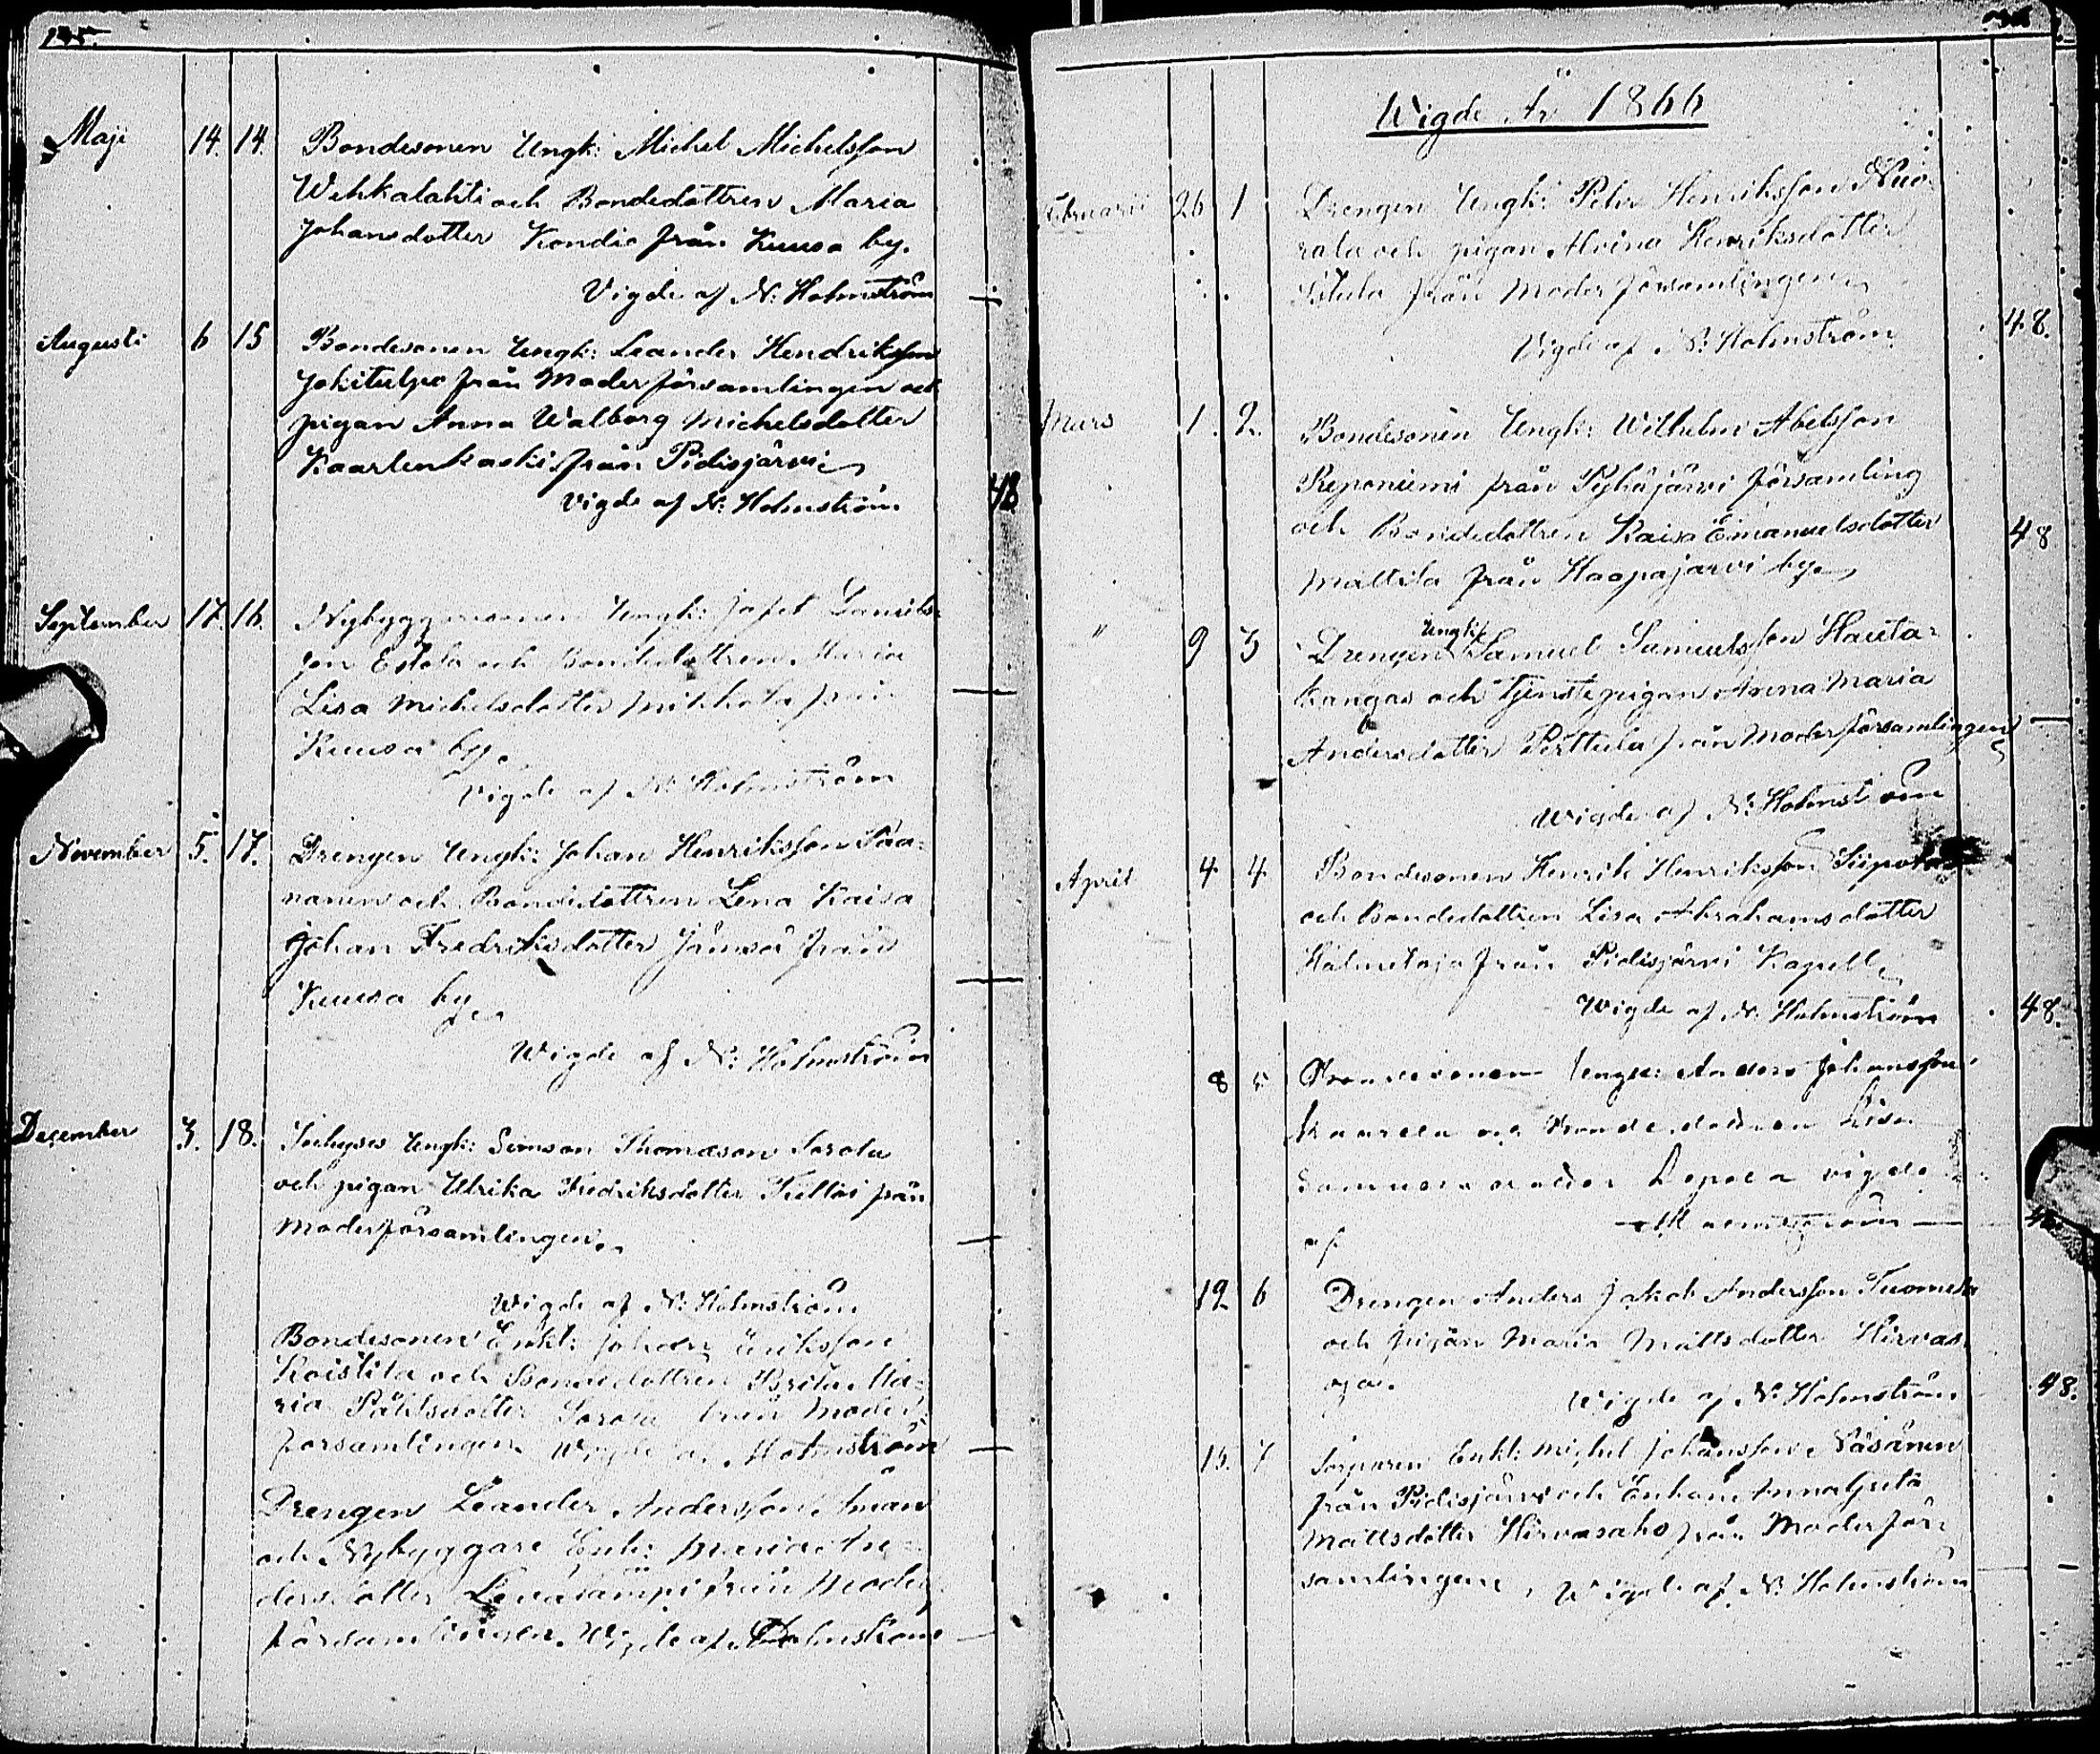 195.
Maji 14. 14. Bondesonen Ungk: Michel Michelsson
Wehkalahti och Bondedottren Maria
Johansdotter Kondio från Kuusa by.
Vigde af N: Holmström
Augusti 6 15 Bondesonen Ungk: Leander Hendriksson
Jokitulpo från Moderförsamlingen och
pigan Anna Walborg Michelsdotter
Kaarlenkoski från Pidisjärvi
Vigde af N: Holmström
48
September 17. 16. Nybyggaresonen Ungk: Jafet Daniels-
son Eskola och Bondedottren Maria
Lisa Michelsdotter Mikkola från
Kuusa by.
Vigde af N: Holmström
November 5. 17. Drengen Ungk: Johan Henriksson Paa-
nanen och Bondedottren Lena Kaisa
Johan Fredriksdotter Jämsä från
Kuusa by.
Wigde af N: Holmström
December 3. 18. Ungk: Simson Thomasson Sorola
och pigan Ulrika Fredriksdotter från
Moderförsamlingen.
Wigde af N: Holmström
Bondesonen Enkl: Johan Eriksson
Koistila och Bondedottren Brita Ma-
ria Påhlsdotter Sorola från Moder-
församlingen Wigde af Holmström
Drengen Leander Andersson Åman
och Nybyggare Enk: Maria An-
dersdotter från Moder
församlingen. Wigde af Holmström
Wigde År 1866
Februarii 26 1 Drengen Ungk: Petter Henriksson Nuo-
rala och pigan Alvina Henriksdotter
från Moderförsamlingen
Vigde af N: Holmström
48.
Mars 1. 2. Bondesonen Ungk: Wilhelm Abelsson
Reponiemi från Pyhäjärvi församling
och Bondedottren Kaisa Emanuelsdotter
48
Mattila från Haapajärvi by.
" 9 3 Drengen Ungk: Samuel Samuelsson Hauta-
kangas och tjenstepigan Anna Maria
Andersdotter Perttula från Moderförsamlingen
Wigde af N: Holmström
April 4 4 Bondesonen Henrik Henriksson Siipola
och Bondedottren Lisa Abrahamsdotter
Halmetoja från Pidisjärvi Kapell
Wigde af N: Holmström
48.
8 5 Bondesonen Ungk: Anders Johansson
och Bondedottren Lisa
vigde
af Holmström
48.
12 6 Drengen Anders Jakob Andersson Tuomela
och pigan Maria Mattsdotter Hirvas-
oja.
Wigde af N: Holmström
48.
15. 7 Torparen Enkl: Michel Johansson Väsänen
från Pidisjärvi och Enkan Anna Greta
Mattsdotter Hirvasaho från Moderför-
samlingen, Wigde af N: Holmström